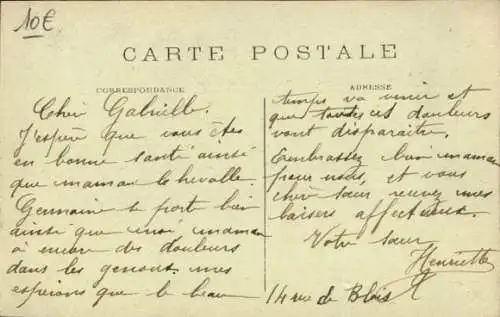 10€
CARTE POSTALE
CORRESPONDANCE
Cher Gabrielle.
J'espère que vous êtes
en bonne santé ainsi
que maman Lechevalle.
Germaine se porte bien
ainsi que moi, maman
a encore des douleurs
dans les genoux. mes
espérons que le beau
ADRESSE
temps va venir et
que toutes ces douleurs
vont disparaître.
Embrassez bien maman
pour nous, et vous
chère sœur recevez mes
baisers affectueux.
Votre sœur
Henriette
14 rue de Blois